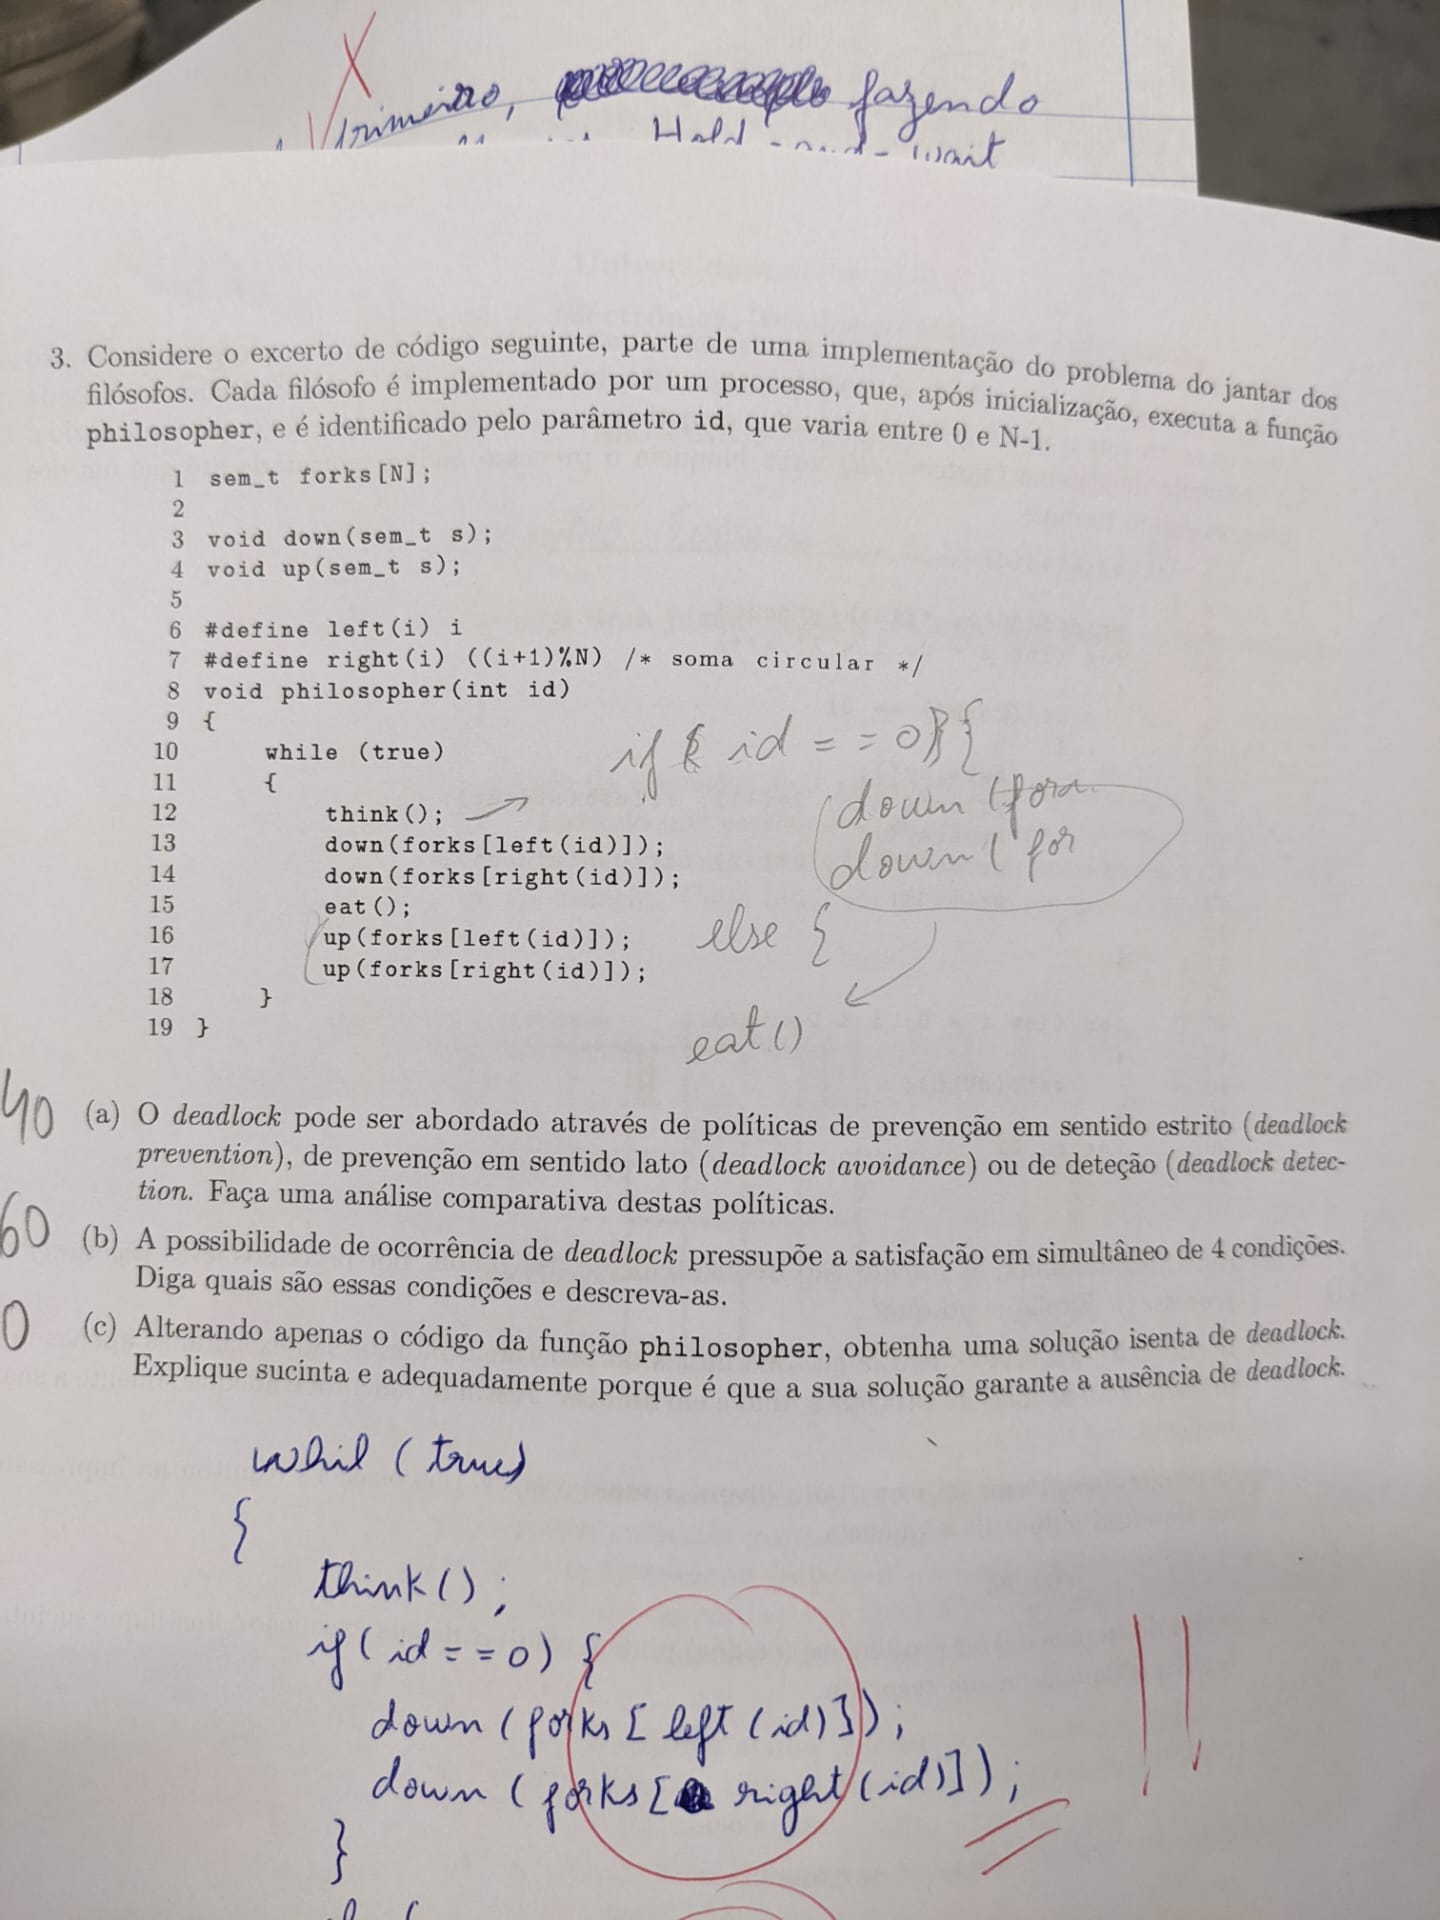 Primeiro, fazendo
Hold-and-wait
3. Considere o excerto de código seguinte, parte de uma implementação do problema do jantar dos
filósofos. Cada filósofo é implementado por um processo, que, após inicialização, executa a função
philosopher, e é identificado pelo parâmetro id, que varia entre 0 e N-1.
1 sem_t forks[N];
2
3 void down(sem_t s);
4 void up(sem_t s);
5
6 #define left(i) i
7 #define right(i) ((i+1)%N) /* soma circular */
8 void philosopher(int id)
9 {
10 while (true)
11 {
12 think();
13 down(forks[left(id)]);
14 down(forks[right(id)]);
15 eat();
16 up(forks[left(id)]);
17 up(forks[right(id)]);
18 }
19 }
if ( id == 0) {
down (for
down ( for
else {
eat()
40 (a) O deadlock pode ser abordado através de políticas de prevenção em sentido estrito (deadlock
prevention), de prevenção em sentido lato (deadlock avoidance) ou de deteção (deadlock detec-
tion. Faça uma análise comparativa destas políticas.
60 (b) A possibilidade de ocorrência de deadlock pressupõe a satisfação em simultâneo de 4 condições.
Diga quais são essas condições e descreva-as.
0 (c) Alterando apenas o código da função philosopher, obtenha uma solução isenta de deadlock.
Explique sucinta e adequadamente porque é que a sua solução garante a ausência de deadlock.
whil (true)
{
think();
if( id == 0) {
down (forks [ left (id)]);
down ( forks [ right (id)]);
}
!!